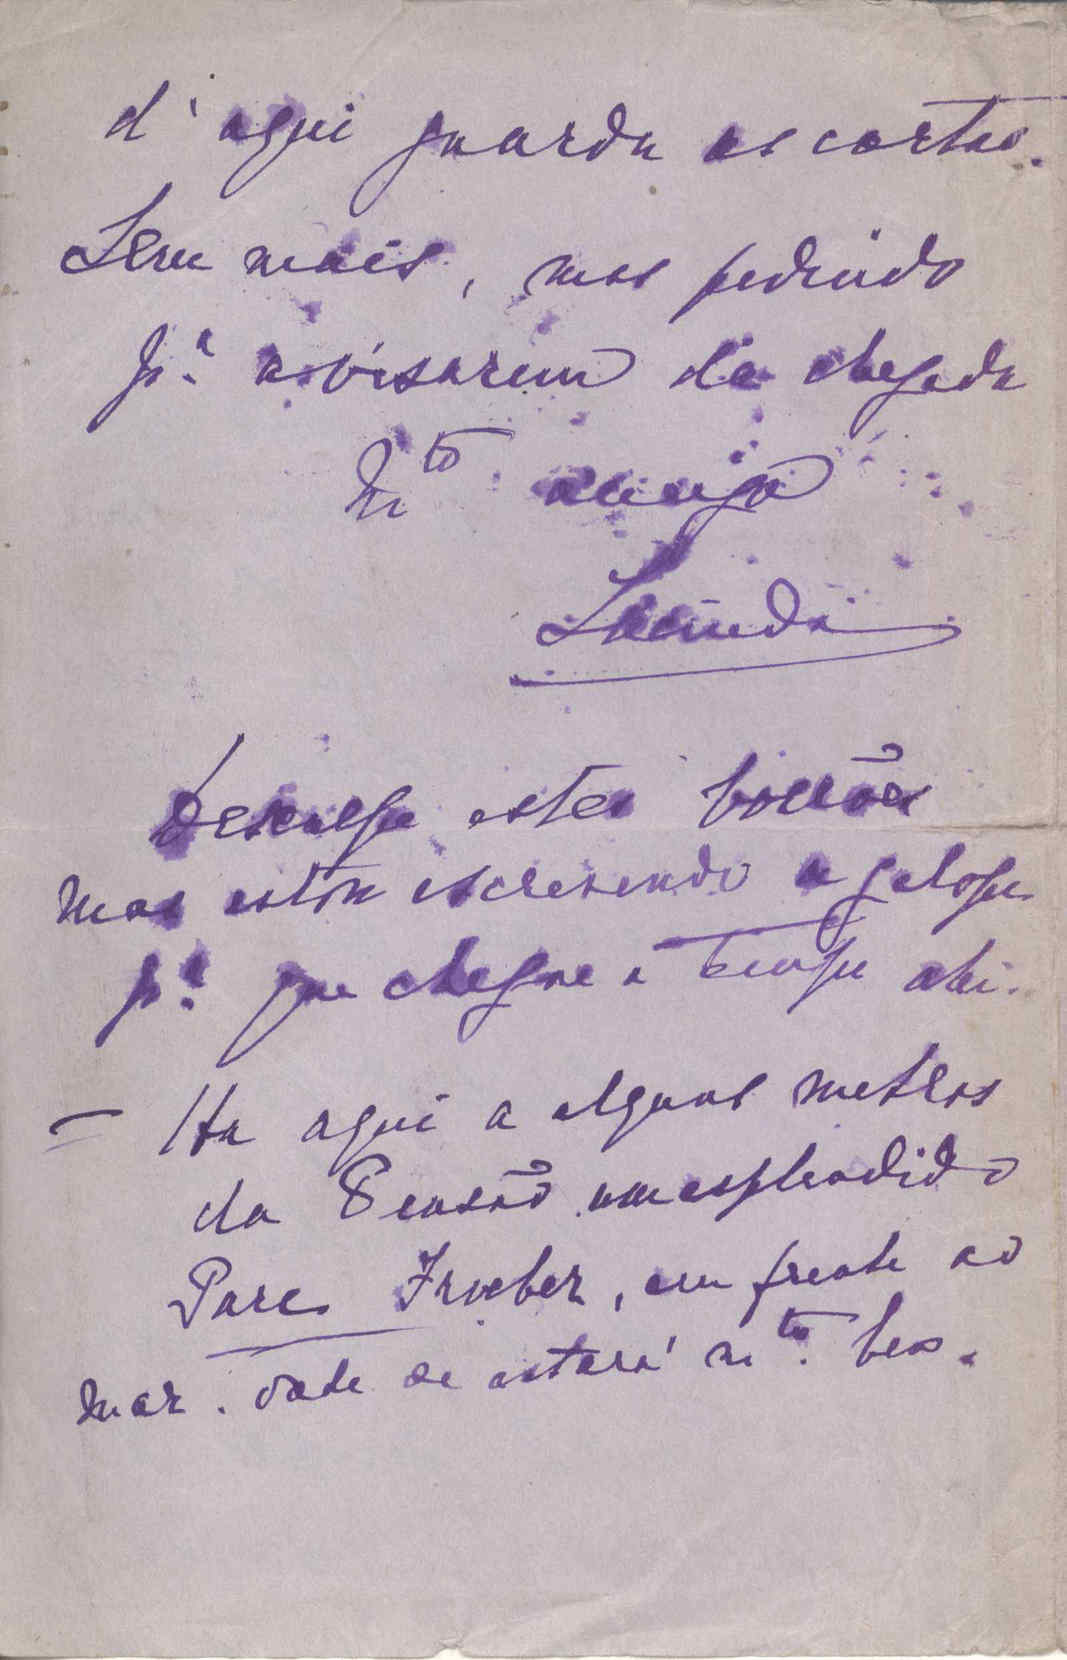 d'aqui guarda as cartas.
Sem mais, mas pedindo
p.ª avisarem da chegada
M.to amiga
Lucinda
Desculpe estes borrões
mas estou escrevendo a galope
p.ª que chegue a tempo ahi.
= Ha aqui a alguns metros
da Pensão um esplendido
Parc Froeber, em frente ao
mar. onde se estará m.to bem.